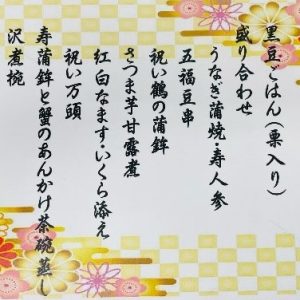 黒豆ごはん(栗入り)
盛り合わせ
うなぎ蒲焼・寿人参
五福豆串
祝い鶴の蒲鉾
さつま芋甘露煮
紅白なます・いくら添え
祝い万頭
寿蒲鉾と蟹のあんかけ茶碗蒸し
沢煮椀